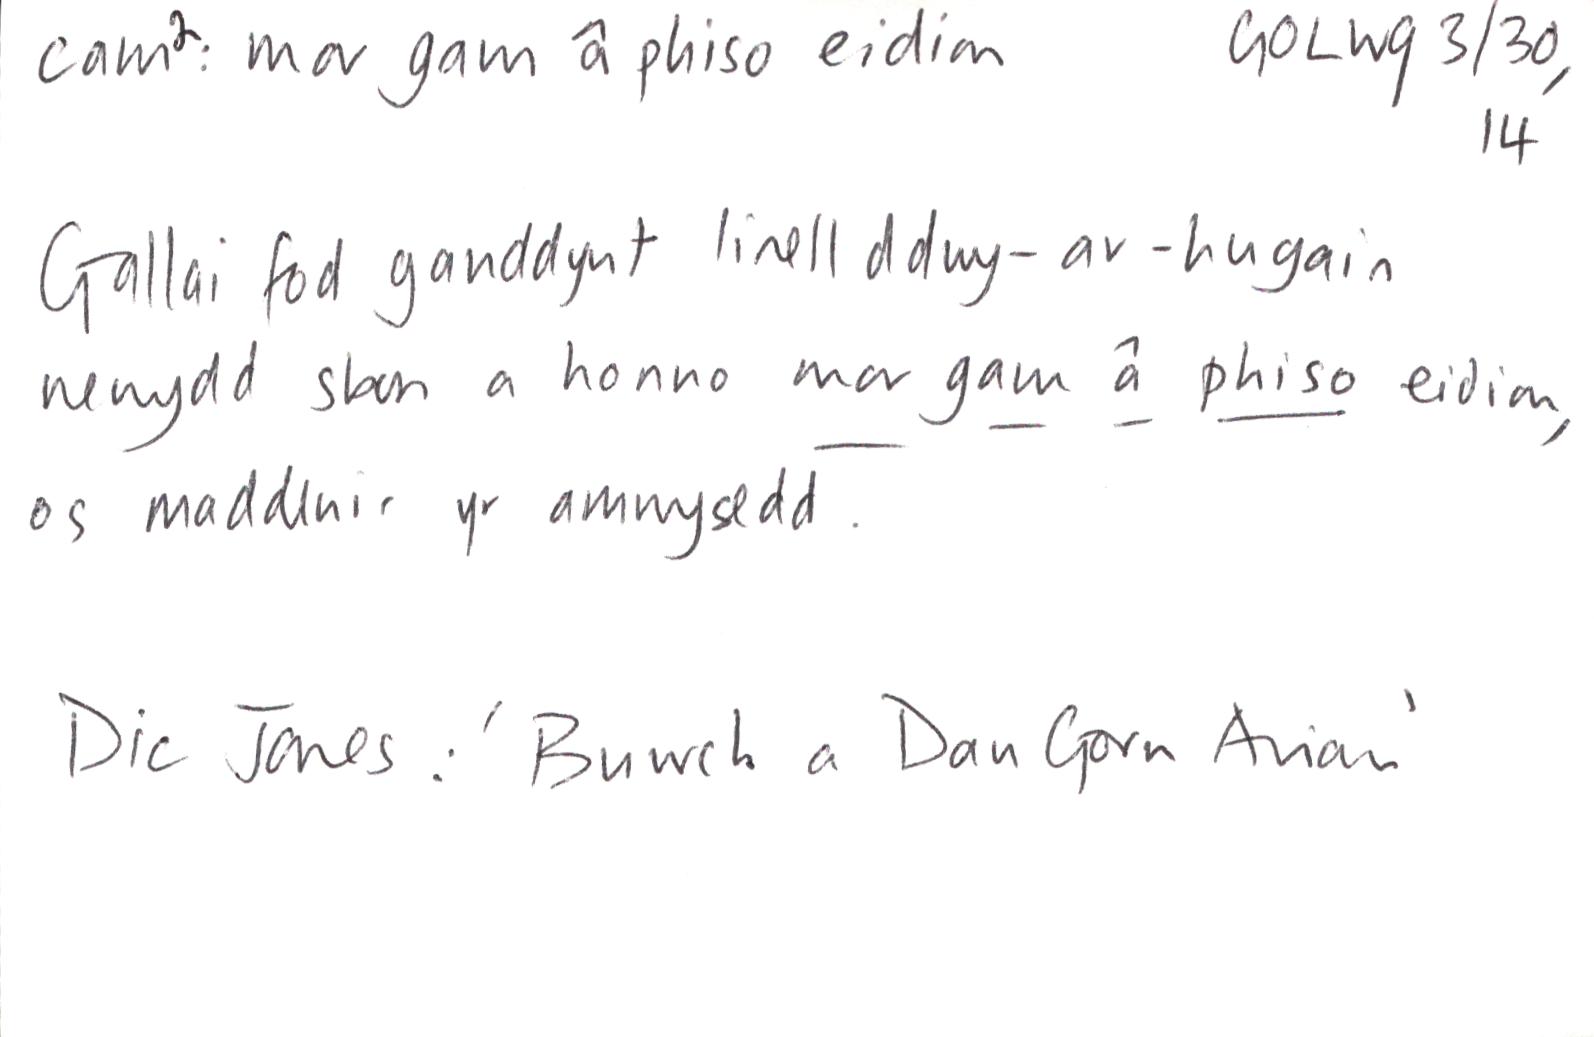 cam²: mor gam â phiso eidion GOLWG 3/30,
14
Gallai fod ganddynt linell ddwy-ar-hugain
newydd sbon a honno mor gam â phiso eidion,
os maddeuir yr amwysedd.
Dic Jones: 'Buwch a Dau Gorn Arian'